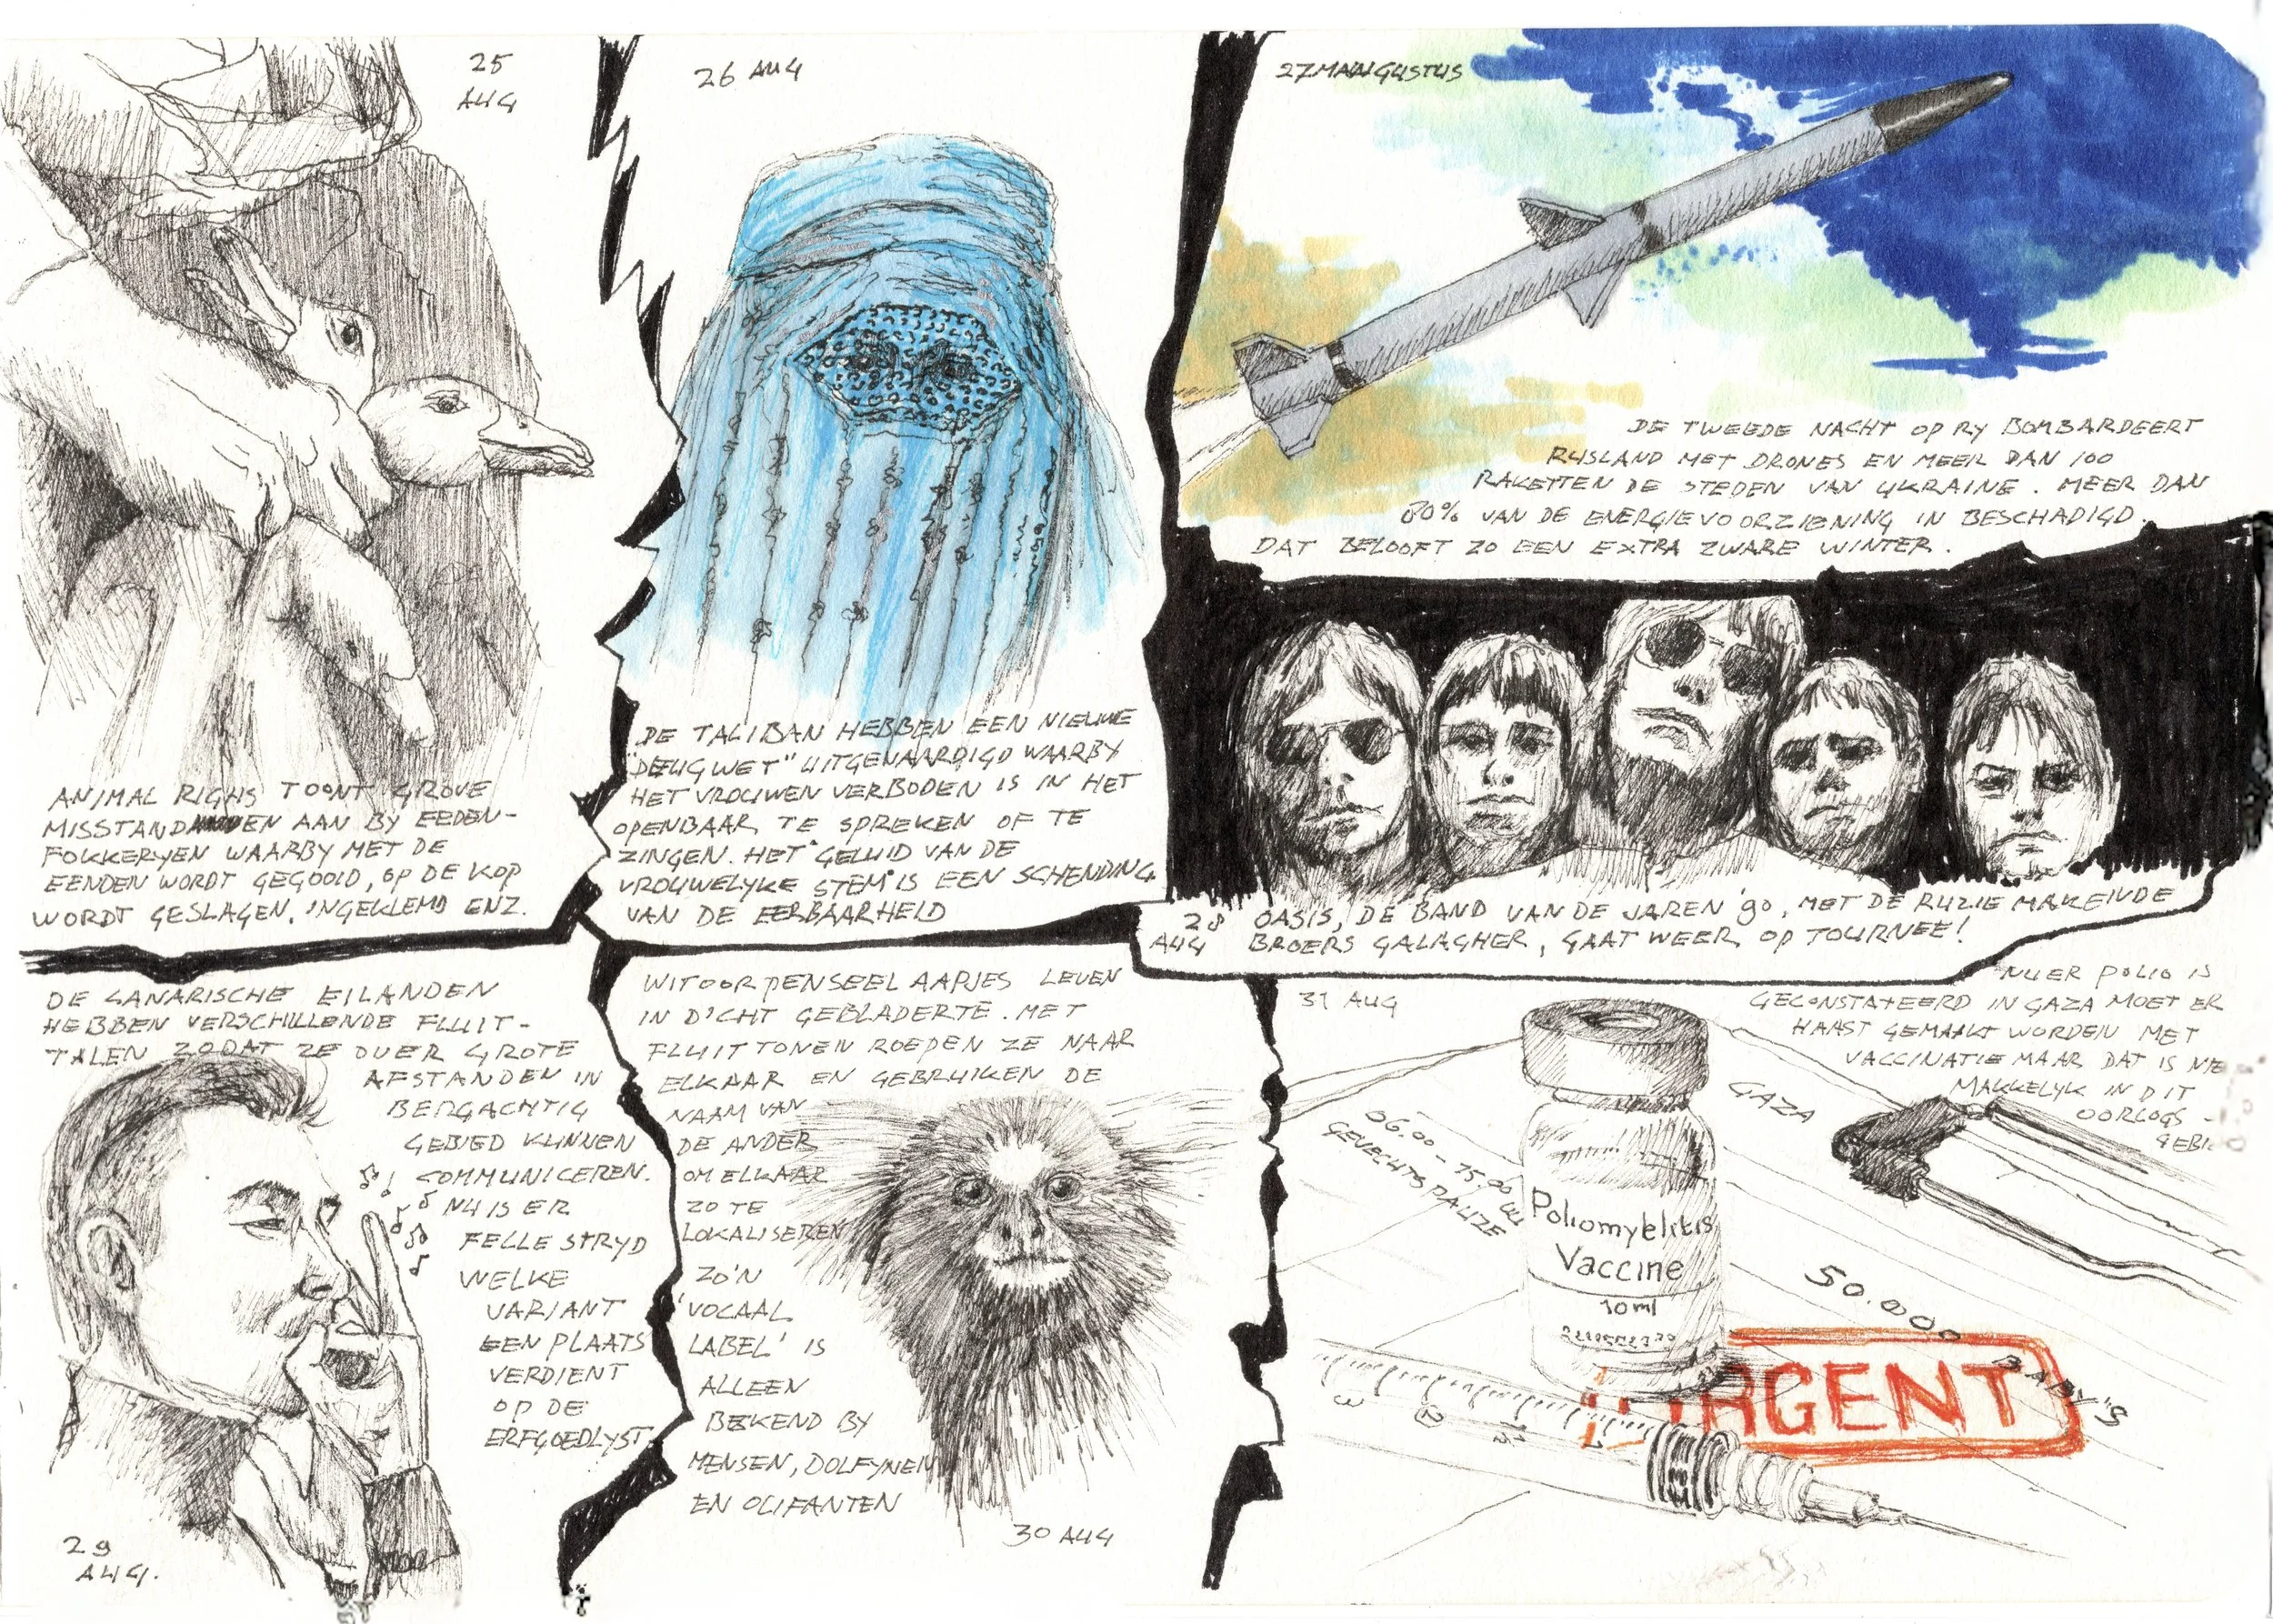 25
AUG
ANIMAL RIGHS TOONT GROVE
MISSTANDEN AAN BY EEDEN-
FOKKERYEN WAARBY MET DE
EENDEN WORDT GEGOOID, OP DE KOP
WORDT GESLAGEN, INGEKLEMD ENZ.
26 AUG
DE TALIBAN HEBBEN EEN NIEUWE
"DEUGWET" UITGEVAARDIGD WAARBY
HET VROUWEN VERBODEN IS IN HET
OPENBAAR TE SPREKEN OF TE
ZINGEN. HET GELUID VAN DE
VROUWELYKE STEM IS EEN SCHENDING
VAN DE EERBAARHEID
27 AUGUSTUS
DE TWEEDE NACHT OP RY BOMBARDEERT
RUSLAND MET DRONES EN MEER DAN 100
RAKETTEN DE STEDEN VAN UKRAINE. MEER DAN
80% VAN DE ENERGIEVOORZIENING IN BESCHADIGD.
DAT BELOOFT ZO EEN EXTRA ZWARE WINTER.
28
AUG
OASIS, DE BAND VAN DE JAREN '90, MET DE RUZIE MAKENDE
BROERS GALAGHER, GAAT WEER OP TOURNEE!
DE CANARISCHE EILANDEN
HEBBEN VERSCHILLENDE FLUIT-
TALEN ZODAT ZE OVER GROTE
AFSTANDEN IN
BERGACHTIG
GEBIED KUNNEN
COMMUNICEREN.
NU IS ER
FELLE STRYD
WELKE
VARIANT
EEN PLAATS
VERDIENT
OP DE
ERFGOEDLYST
29
AUG.
WITOORPENSEELAAPJES LEVEN
IN D'CHT GEBLADERTE. MET
FLUITTONEN ROEPEN ZE NAAR
ELKAAR EN GEBRUIKEN DE
NAAM VAN
DE ANDER
OM ELKAAR
ZO TE
LOKALISEREN
ZO'N
'VOCAAL
LABEL' IS
ALLEEN
BEKEND BY
MENSEN, DOLFYNEN
EN OLIFANTEN
30 AUG
31 AUG
NU ER POLIO IS
GECONSTATEERD IN GAZA MOET ER
HAAST GEMAAKT WORDEN MET
VACCINATIE MAAR DAT IS NIE
MAKKELYK IN DIT
OORLOGS-
GEBI
GAZA
06.00 - 15.00 UU
GEVECHTSPAUZE
Poliomyelitis
Vaccine
10ml
50.000
BABY'S
URGENT